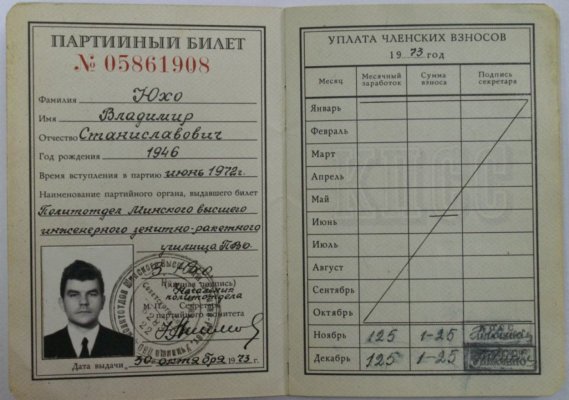 ПАРТИЙНЫЙ БИЛЕТ
№ 05861908
Фамилия Юхо
Имя Владимир
Отчество Станиславович
Год рождения 1946
Время вступления в партию июнь 1972г.
Наименование партийного органа, выдавшего билет
Политотдел Минского высшего
инженерного зенитно-ракетного
училища ПВО
(личная подпись)
Начальник
политотдела
М. П. Секретарь
партийного комитета
Дата выдачи 30 октября 1973 г.
УПЛАТА ЧЛЕНСКИХ ВЗНОСОВ
19 73 год
Месяц Месячный заработок Сумма взноса Подпись секретаря
Январь
Февраль
Март
Апрель
Май
Июнь
Июль
Август
Сентябрь
Октябрь
Ноябрь 125 1-25
Декабрь 125 1-25